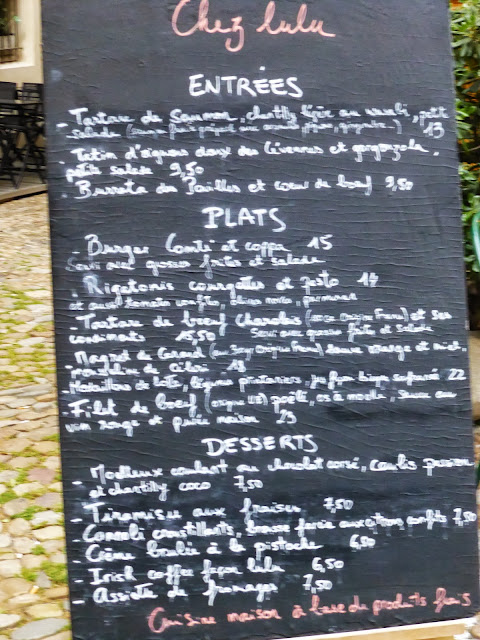 Chez lulu
ENTRÉES
- Tartare de Saumon, chantilly légère au wasabi, petite
salade 13
- Tatin d'oignons doux des Cévennes et gorgonzola,
petite salade 9,50
- Burrata des Pouilles et coeur de boeuf 9,50
PLATS
- Burger Comté et coppa 15
Servi avec grosses frites et salade
- Rigatonis courgettes et pesto 14
et aussi tomates confites, olives noires, parmesan
- Tartare de boeuf Charolais (Origine France) et ses
condiments 15,50 Servi avec grosses frites et salade
- Magret de Canard (Origine France) sauce orange et miel,
mousseline de céleri 18
- Médaillons de lotte, légumes printaniers, jus façon safrané 22
- Filet de boeuf (origine UE) poêlé, os à moelle, sauce au
vin rouge et purée maison 23
DESSERTS
- Moelleux coulant au chocolat corsé, coulis passion
et chantilly coco 7,50
- Tiramisu aux fraises 7,50
- Cannoli croustillants, brousse farcie aux citrons confits 7,50
- Crème brulée à la pistache 6,50
- Irish coffee façon lulu 6,50
- Assiette de fromages 7,50
Cuisine maison à base de produits frais